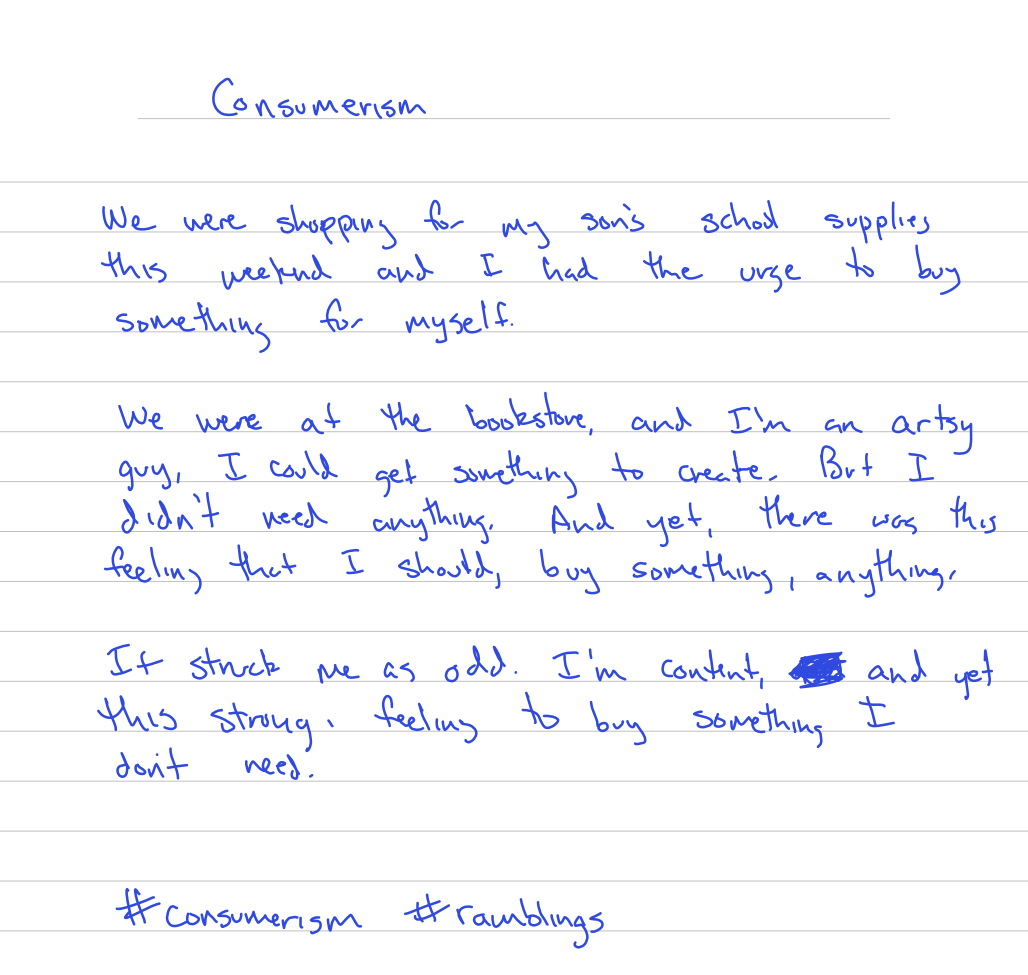 Consumerism
We were shopping for my son's school supplies
this weekend and I had the urge to buy
something for myself.
We were at the bookstore, and I'm an artsy
guy, I could get something to create. But I
didn't need anything. And yet, there was this
feeling that I should, buy something, anything.
It struck me as odd. I'm content, and yet
this strong, feeling to buy something I
don't need.
#consumerism #ramblings